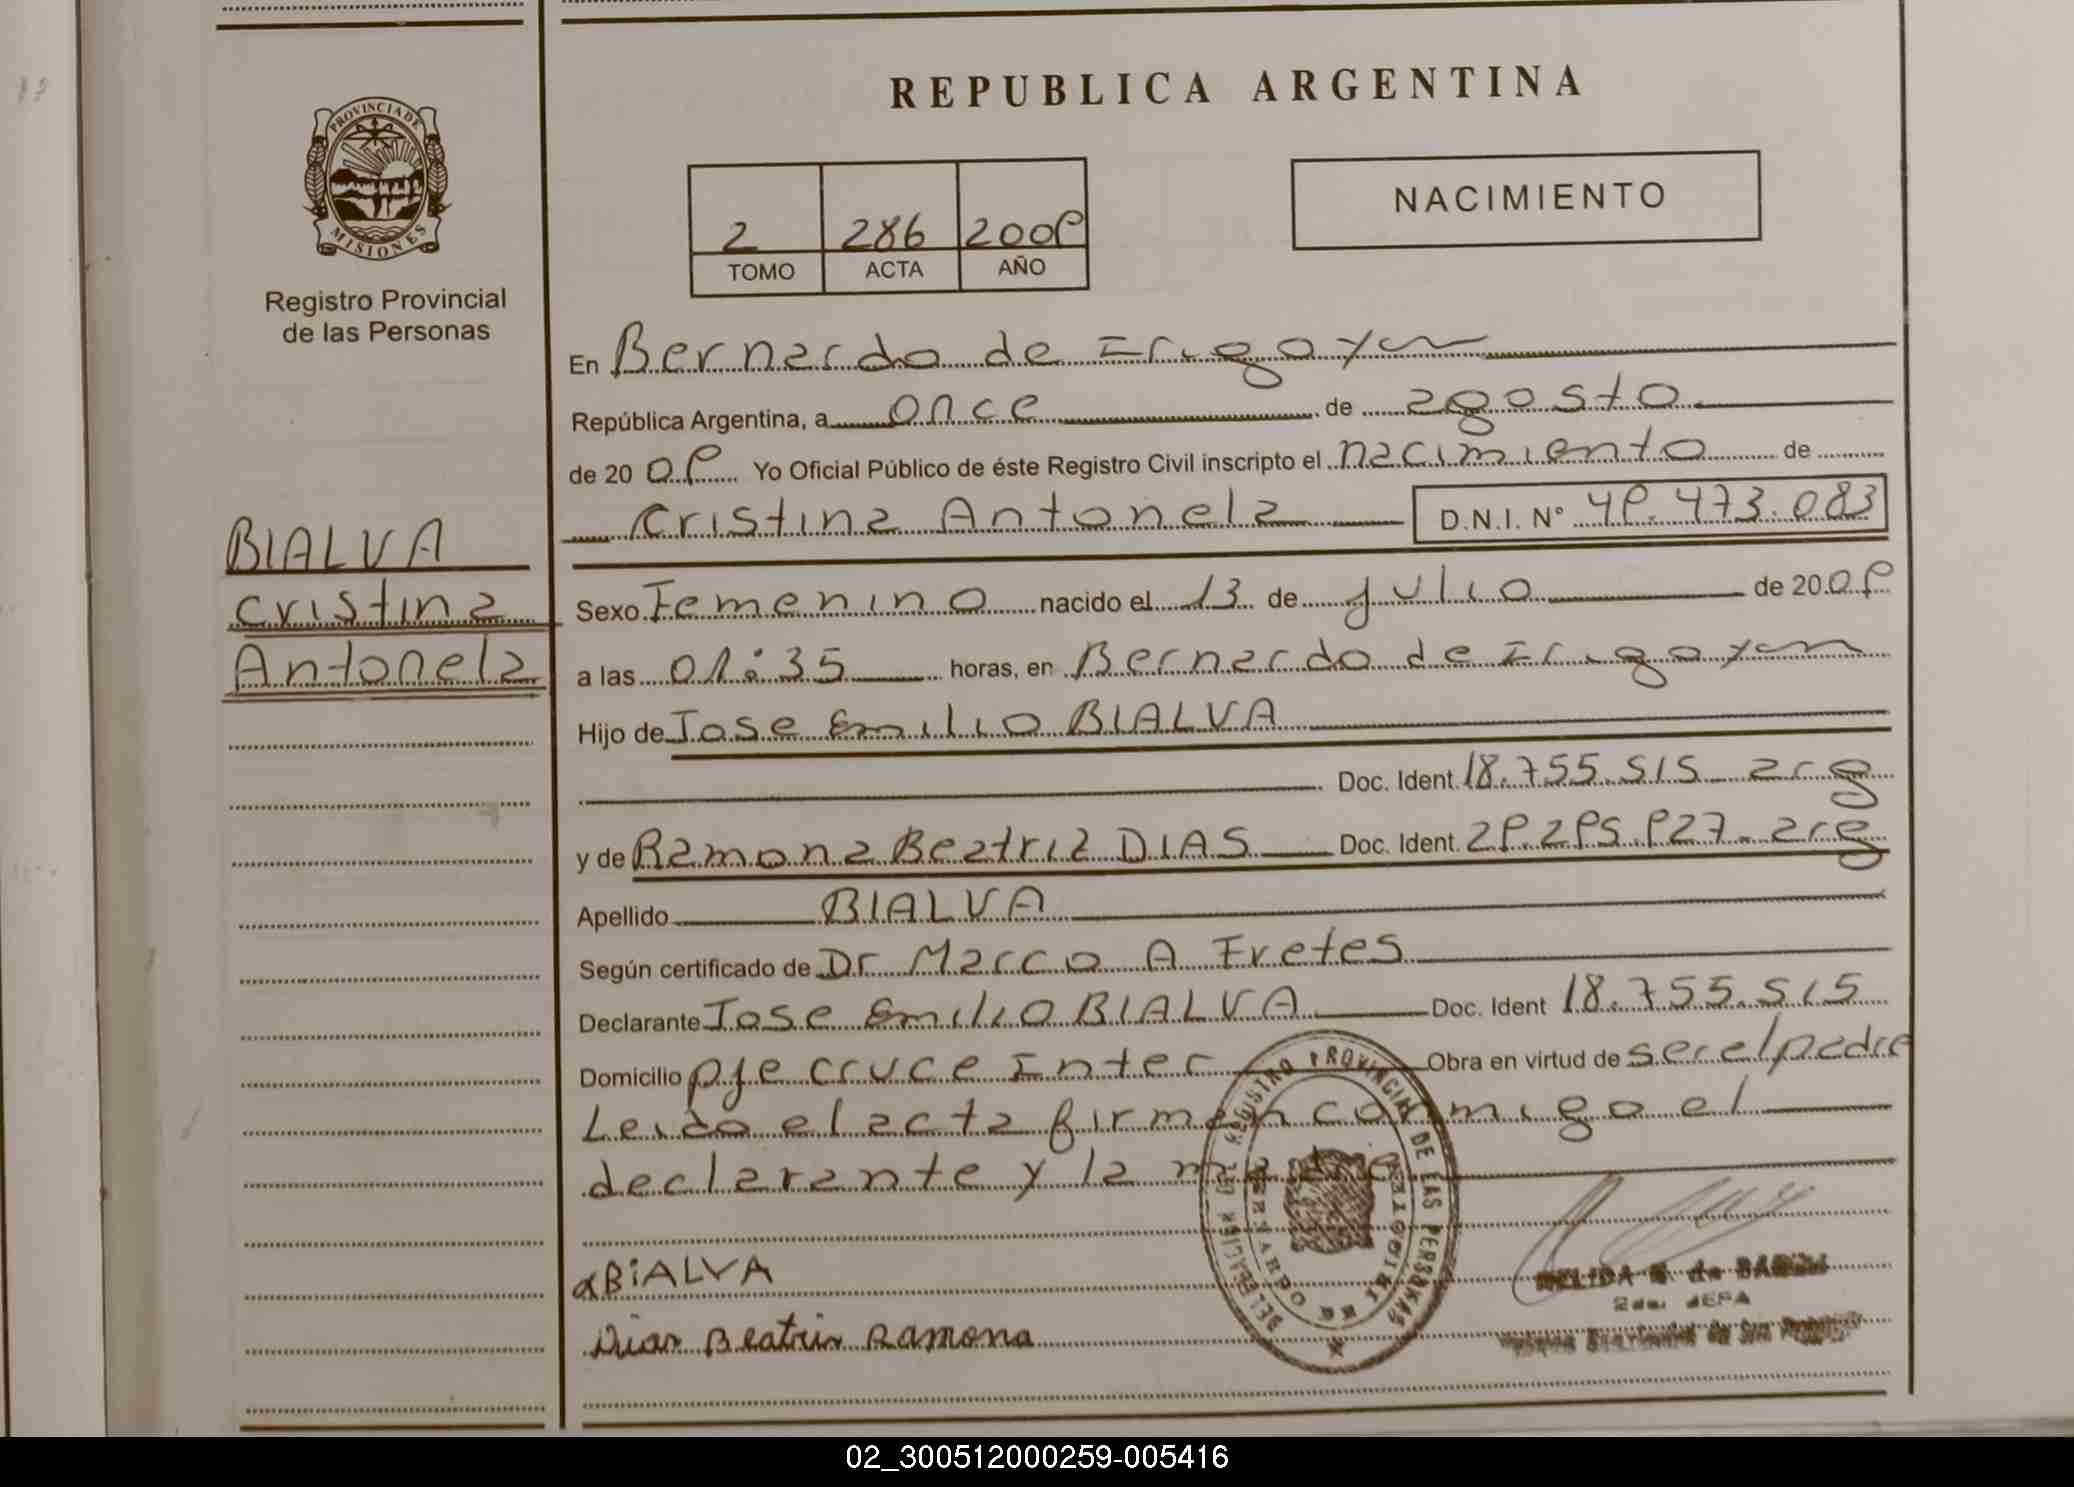 REPUBLICA ARGENTINA
PROVINCIA DE
MISIONES
Registro Provincial
de las Personas
2 286 2009
TOMO ACTA AÑO
NACIMIENTO
En Bernardo de Irigoyen
República Argentina, a once de agosto
de 20 09 Yo Oficial Público de éste Registro Civil inscripto el nacimiento de
Cristina Antonela D.N.I. N° 49.473.083
BIALVA
Cristina
Antonela
Sexo Femenino nacido el 13 de julio de 20 09
a las 01:35 horas, en Bernardo de Irigoyen
Hijo de Jose Emilio BIALVA
Doc. Ident. 18.755.515 arg
y de Ramona Beatriz DIAS Doc. Ident. 29.295.927 - arg
Apellido BIALVA
Según certificado de Dr Marco A Fretes
Declarante Jose Emilio BIALVA Doc. Ident 18.755.515
Domicilio pje cruce Inter Obra en virtud de ser el padre
Leida el acta firman conmigo el
declarante y la madre
REGISTRO PROVINCIAL DE LAS PERSONAS
BiALVA
Dias Beatris Ramona
2da. JEFA
02_300512000259-005416